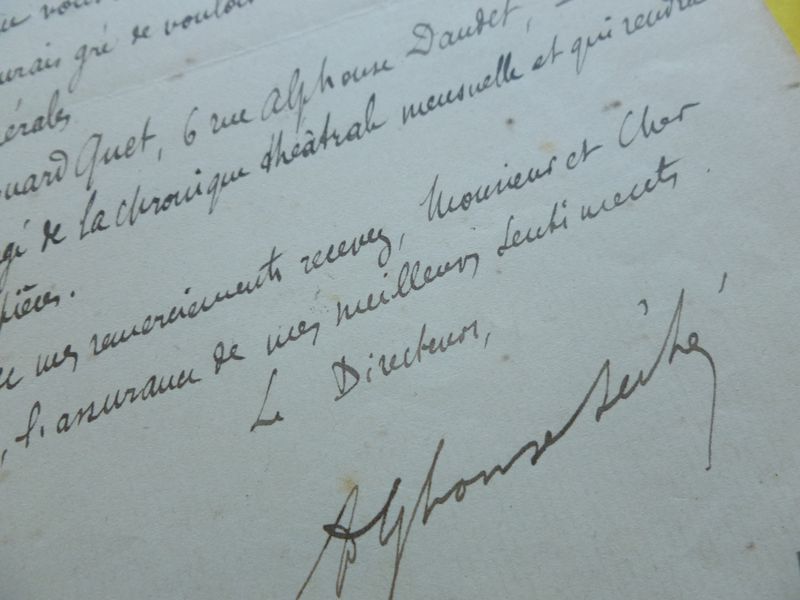 vous
urais gré de vouloir
érales
ouard Quet, 6 rue Alphonse Daudet,
gé de la chronique théâtrale mensuelle et qui rendra
pièces.
mes remerciements recevez, Monsieur et Cher
, l'assurance de mes meilleurs sentiments.
Le Directeur,
Alphonse Séché